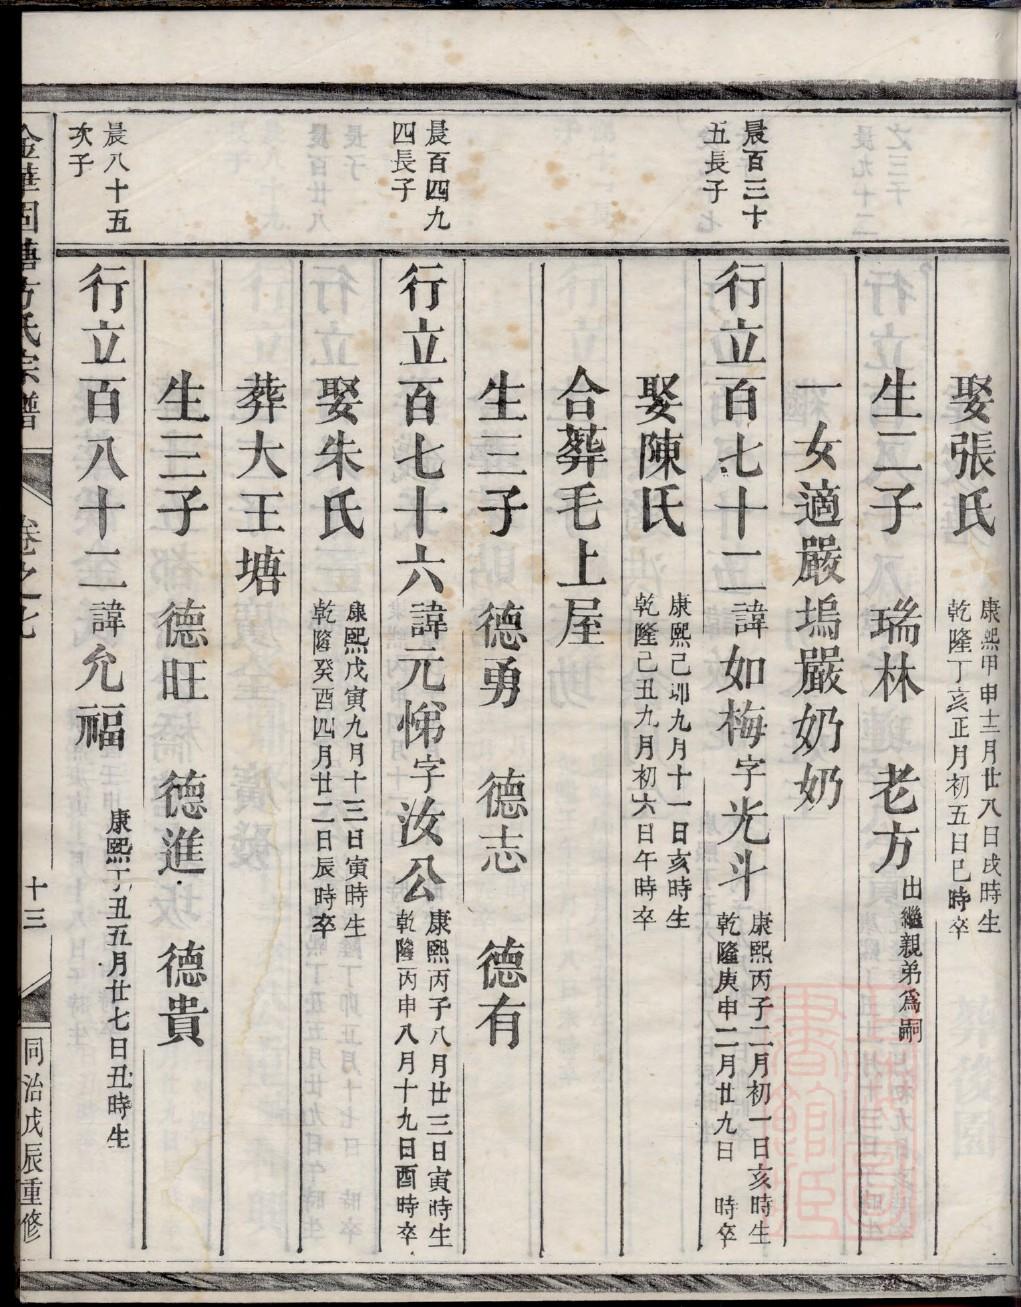 娶張氏
康熙甲申十二月廿八日戌時生
乾隆丁亥正月初五日巳時卒
生二子 瑞林 老方出繼親弟爲嗣
一女適嚴塢嚴奶奶
晨百三十
五長子
行立百七十二諱如梅字光斗
康熙丙子二月初一日亥時生
乾隆庚申二月廿九日 時卒
娶陳氏
康熙己卯九月十一日亥時生
乾隆己丑九月初六日午時卒
合葬毛上屋
生三子 德勇 德志 德有
晨百四九
四長子
行立百七十六諱元悌字汝公
康熙丙子八月廿三日寅時生
乾隆丙申八月十九日酉時卒
娶朱氏
康熙戊寅九月十三日寅時生
乾隆癸酉四月廿二日辰時卒
葬大王塘
生三子 德旺 德進 德貴
晨八十五
次子
行立百八十二諱允福
康熙丁丑五月廿七日丑時生
金華固塘方氏宗譜 卷之七 十三 同治戊辰重修